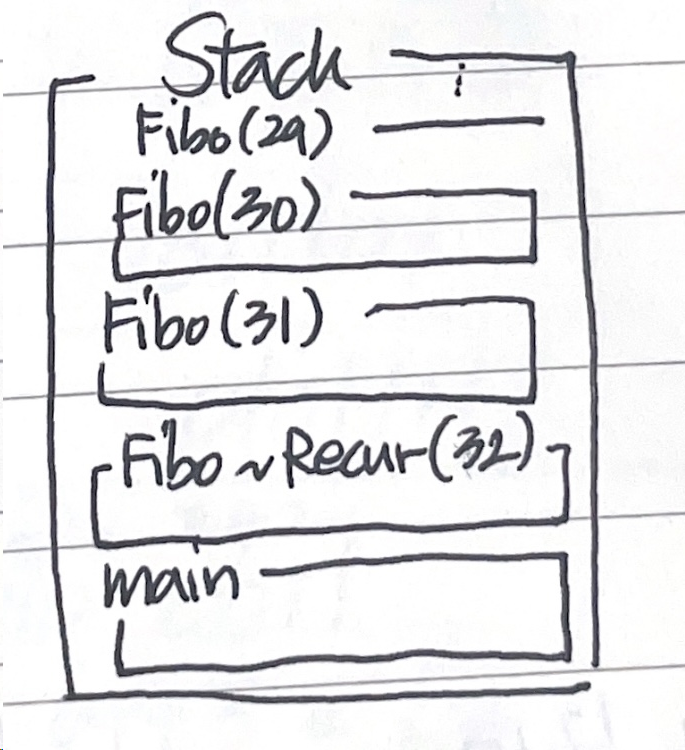 Stack
Fibo(29)
Fibo(30)
Fibo(31)
Fibo ~ Recur(32)
main